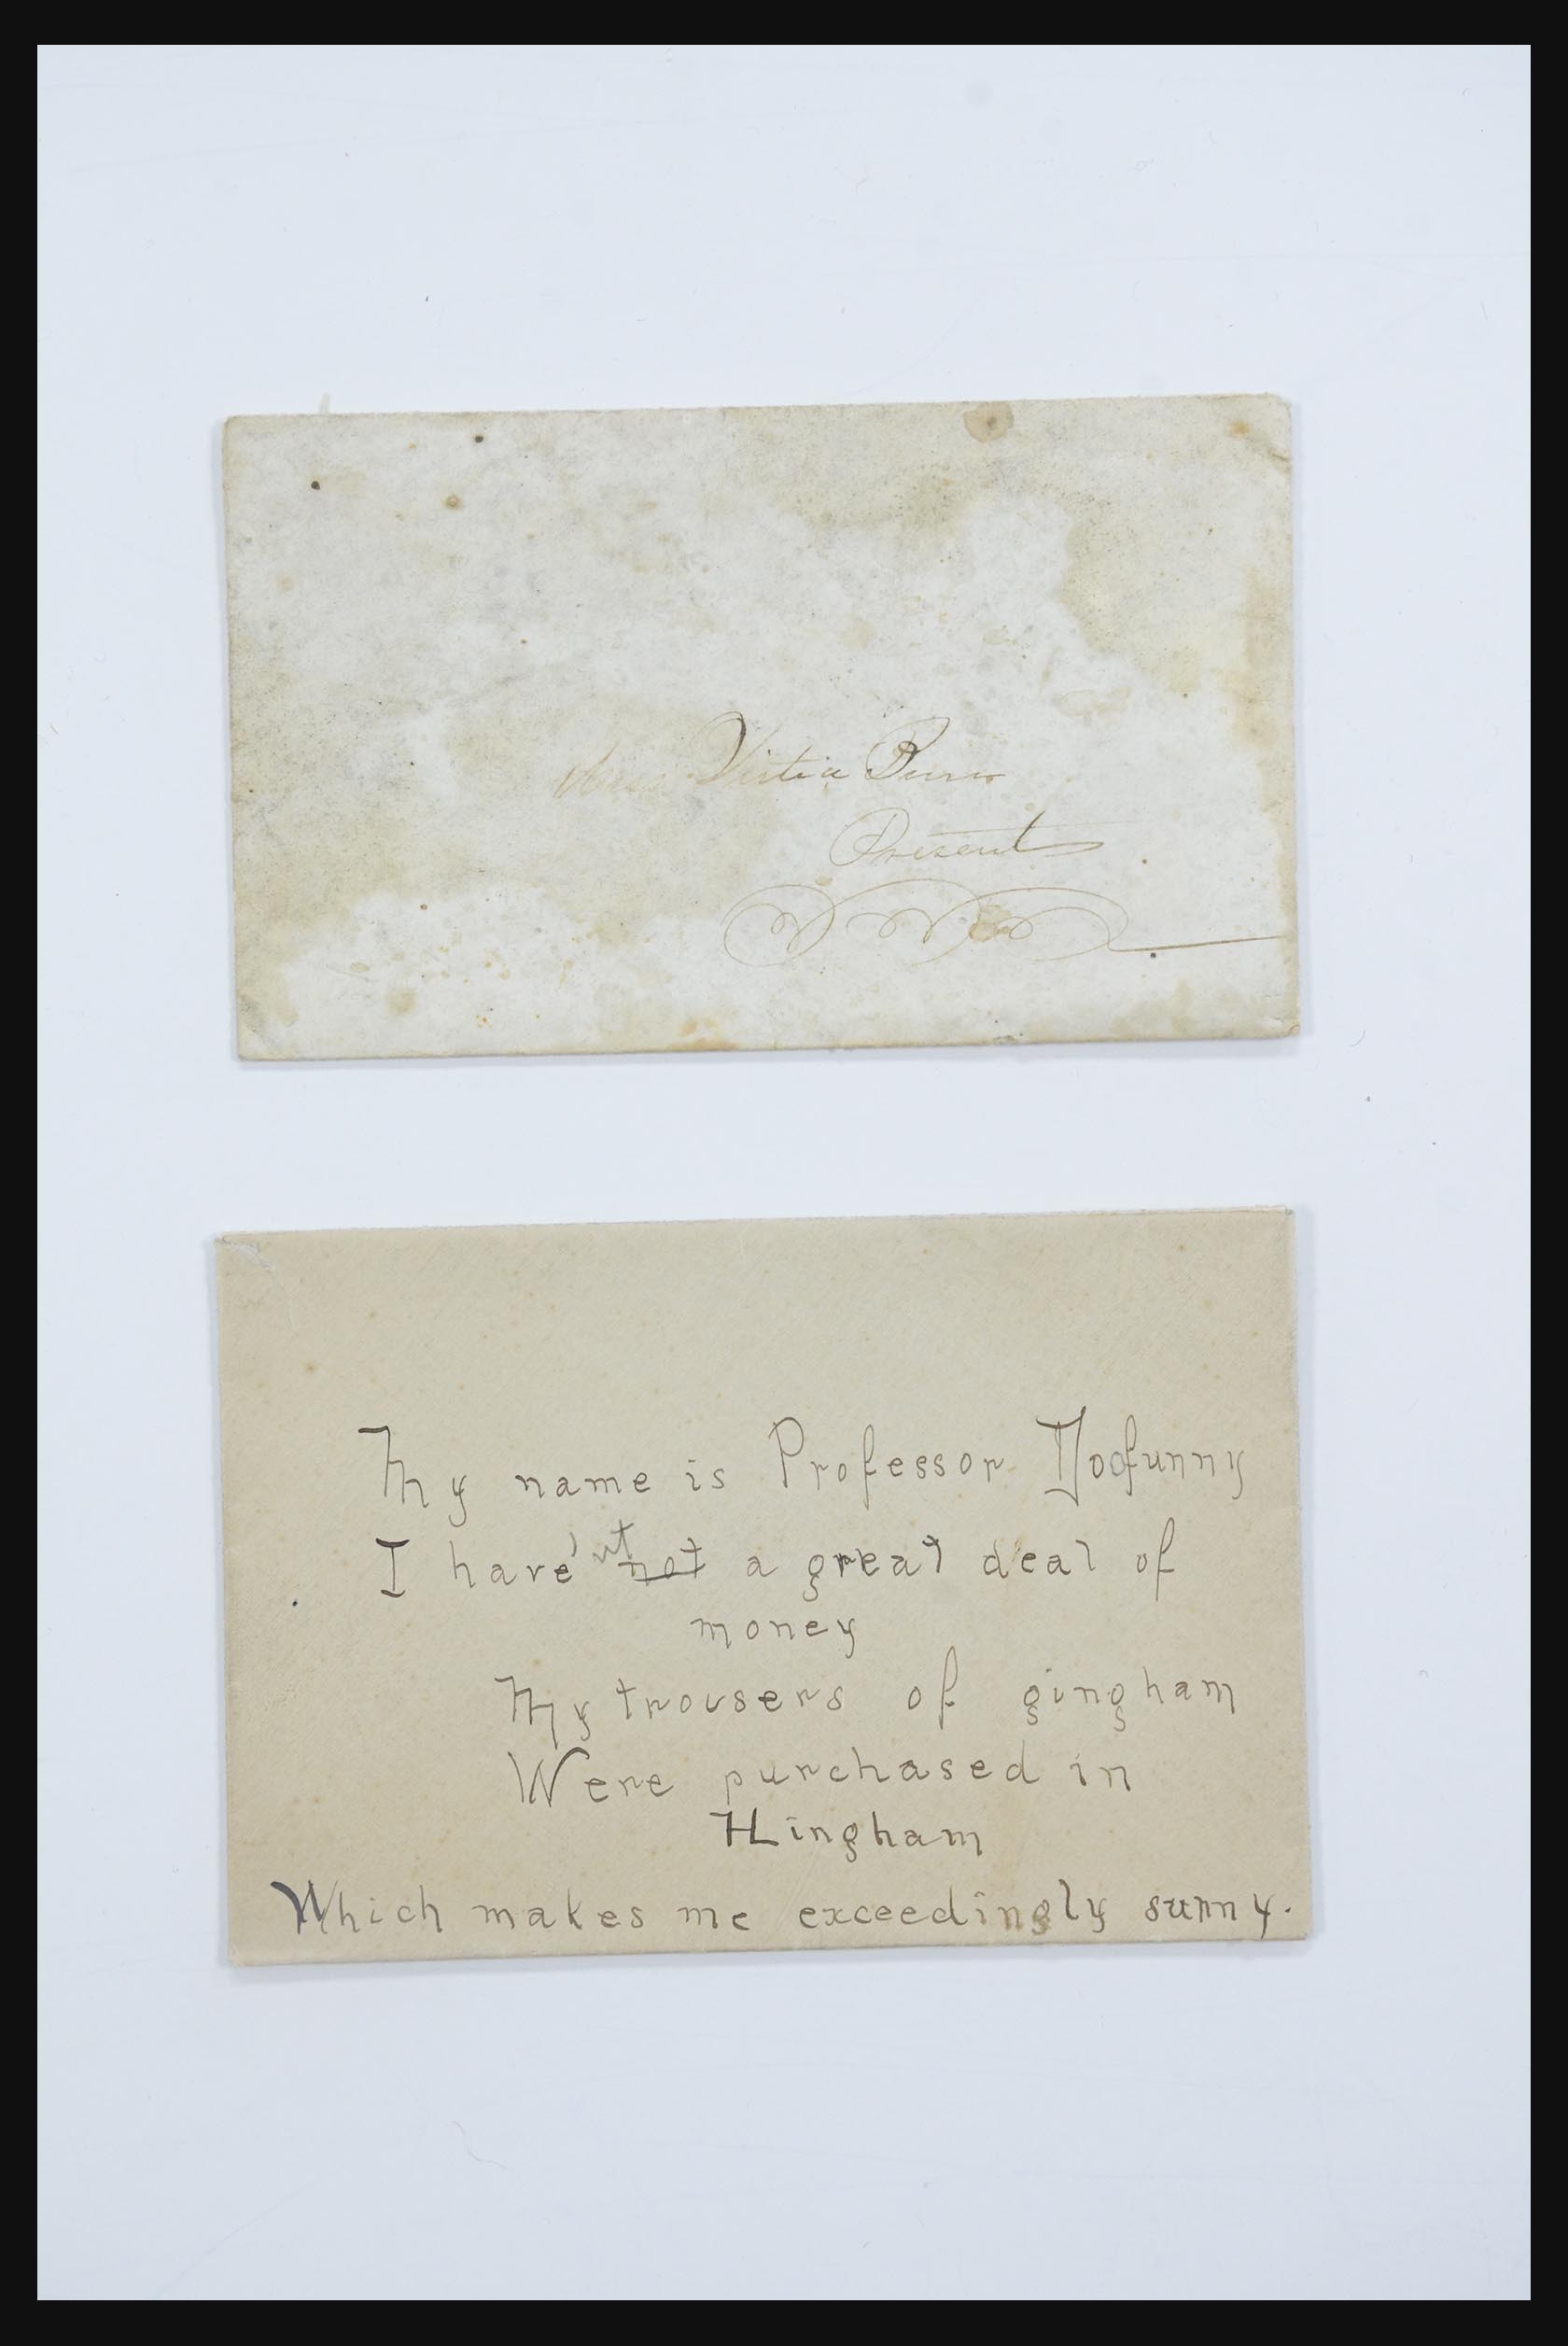 Miss Virtia
Present
My name is Professor Toofunny
I have'nt not a great deal of
money
My trousers of gingham
Were purchased in
Hingham
Which makes me exceedingly sunny.